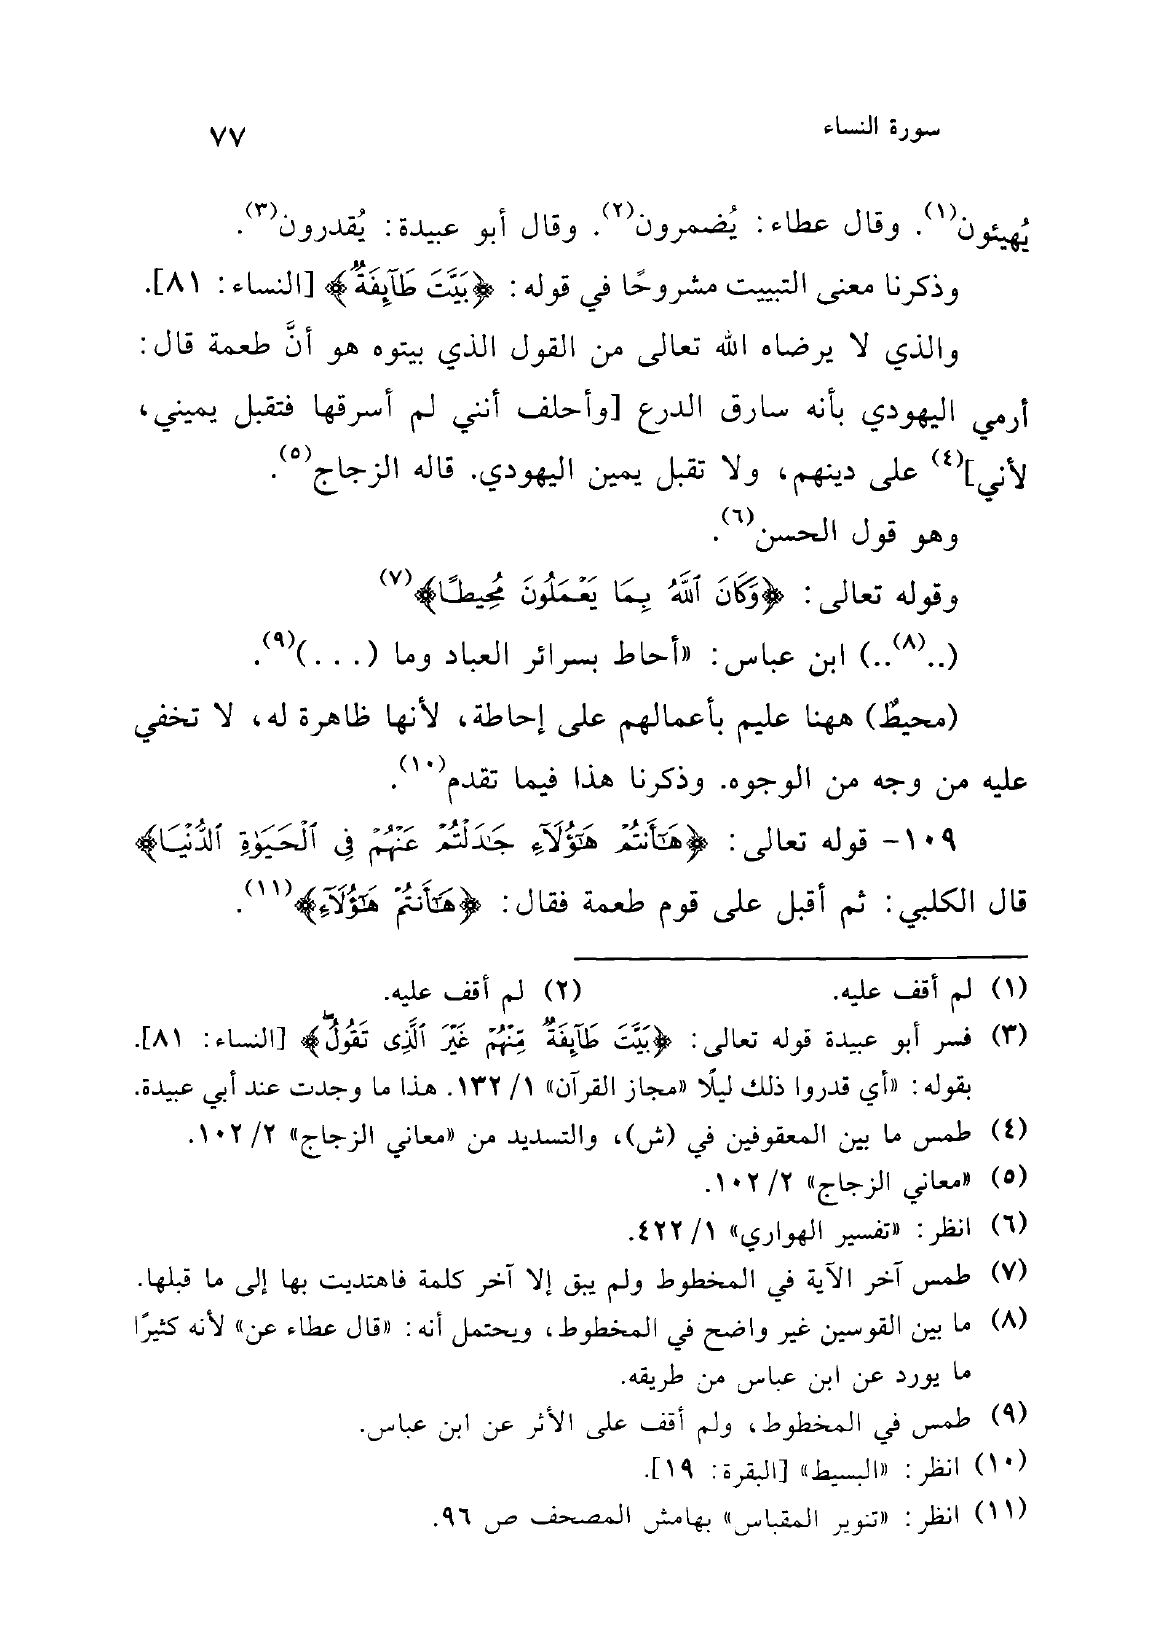 سورة النساء ٧٧
يُهيئون(١). وقال عطاء: يُضمرون(٢). وقال أبو عبيدة: يُقدرون(٣).
وذكرنا معنى التبييت مشروحًا في قوله: ﴿بَيَّتَ طَآئِفَةٌ﴾ [النساء: ٨١].
والذي لا يرضاه الله تعالى من القول الذي بيتوه هو أنَّ طعمة قال:
أرمي اليهودي بأنه سارق الدرع [وأحلف أنني لم أسرقها فتقبل يميني،
لأني](٤) على دينهم، ولا تقبل يمين اليهودي. قاله الزجاج(٥).
وهو قول الحسن(٦).
وقوله تعالى: ﴿وَكَانَ ٱللَّهُ بِمَا يَعْمَلُونَ مُحِيطًا﴾(٧)
(..(٨)..) ابن عباس: «أحاط بسرائر العباد وما (...)(٩).
(محيطٌ) ههنا عليم بأعمالهم على إحاطة، لأنها ظاهرة له، لا تخفي
عليه من وجه من الوجوه. وذكرنا هذا فيما تقدم(١٠).
١٠٩- قوله تعالى: ﴿هَٰٓأَنتُمْ هَٰٓؤُلَآءِ جَٰدَلْتُمْ عَنْهُمْ فِى ٱلْحَيَوٰةِ ٱلدُّنْيَا﴾
قال الكلبي: ثم أقبل على قوم طعمة فقال: ﴿هَٰٓأَنتُمْ هَٰٓؤُلَآءِ﴾(١١).
(١) لم أقف عليه. (٢) لم أقف عليه.
(٣) فسر أبو عبيدة قوله تعالى: ﴿بَيَّتَ طَآئِفَةٌ مِّنْهُمْ غَيْرَ ٱلَّذِى تَقُولُ﴾ [النساء: ٨١].
بقوله: «أي قدروا ذلك ليلًا «مجاز القرآن» ١/ ١٣٢. هذا ما وجدت عند أبي عبيدة.
(٤) طمس ما بين المعقوفين في (ش)، والتسديد من «معاني الزجاج» ٢/ ١٠٢.
(٥) «معاني الزجاج» ٢/ ١٠٢.
(٦) انظر: «تفسير الهواري» ١/ ٤٢٢.
(٧) طمس آخر الآية في المخطوط ولم يبق إلا آخر كلمة فاهتديت بها إلى ما قبلها.
(٨) ما بين القوسين غير واضح في المخطوط، ويحتمل أنه: «قال عطاء عن» لأنه كثيرًا
ما يورد عن ابن عباس من طريقه.
(٩) طمس في المخطوط، ولم أقف على الأثر عن ابن عباس.
(١٠) انظر: «البسيط» [البقرة: ١٩].
(١١) انظر: «تنوير المقباس» بهامش المصحف ص ٩٦.